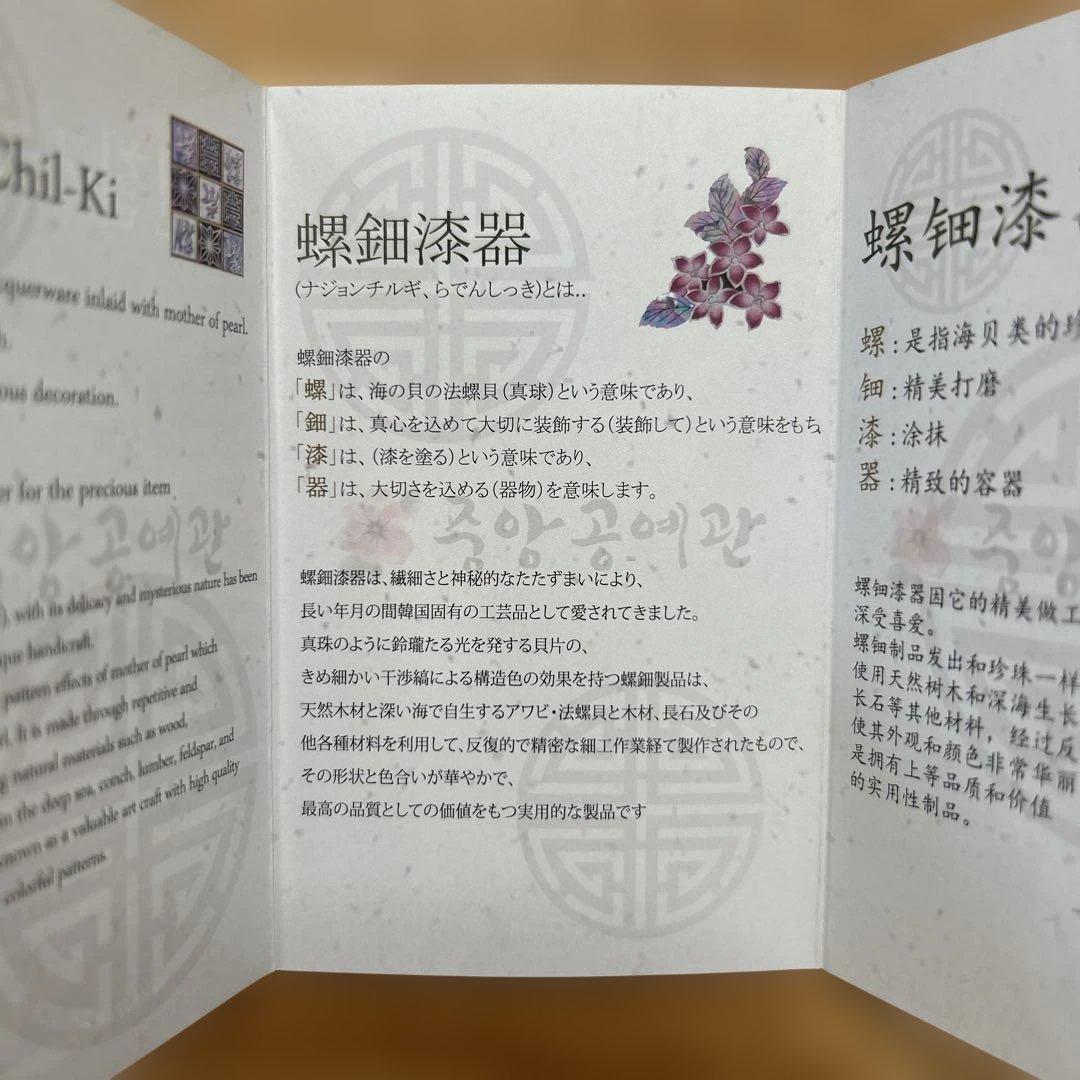 Chil-Ki
inlaid with mother of pearl.
decoration.
for the precious item
공예관
with its delicacy and mysterious nature has been
handicraft.
pattern effects of mother of pearl which
It is made through repetitive and
natural materials such as wood,
the deep sea, conch, lumber, feldspar, and
as a valuable art craft with high quality
colorful patterns.
螺鈿漆器
(ナジョンチルギ、らでんしっき)とは..
螺鈿漆器の
「螺」は、海の貝の法螺貝(真球)という意味であり、
「鈿」は、真心を込めて大切に装飾する(装飾して)という意味をもち
「漆」は、(漆を塗る)という意味であり、
「器」は、大切さを込める(器物)を意味します。
중앙공예관
螺鈿漆器は、繊細さと神秘的なたたずまいにより、
長い年月の間韓国固有の工芸品として愛されてきました。
真珠のように鈴瓏たる光を発する貝片の、
きめ細かい干渉縞による構造色の効果を持つ螺鈿製品は、
天然木材と深い海で自生するアワビ・法螺貝と木材、長石及びその
他各種材料を利用して、反復的で精密な細工作業経て製作されたもので、
その形状と色合いが華やかで、
最高の品質としての価値をもつ実用的な製品です
螺钿漆
螺:是指海贝类的珍
钿:精美打磨
漆:涂抹
器:精致的容器
중앙
螺钿漆器因它的精美做工
深受喜爱。
螺钿制品发出和珍珠一样
使用天然树木和深海生长
长石等其他材料，经过反
使其外观和颜色非常华丽
是拥有上等品质和价值
的实用性制品。